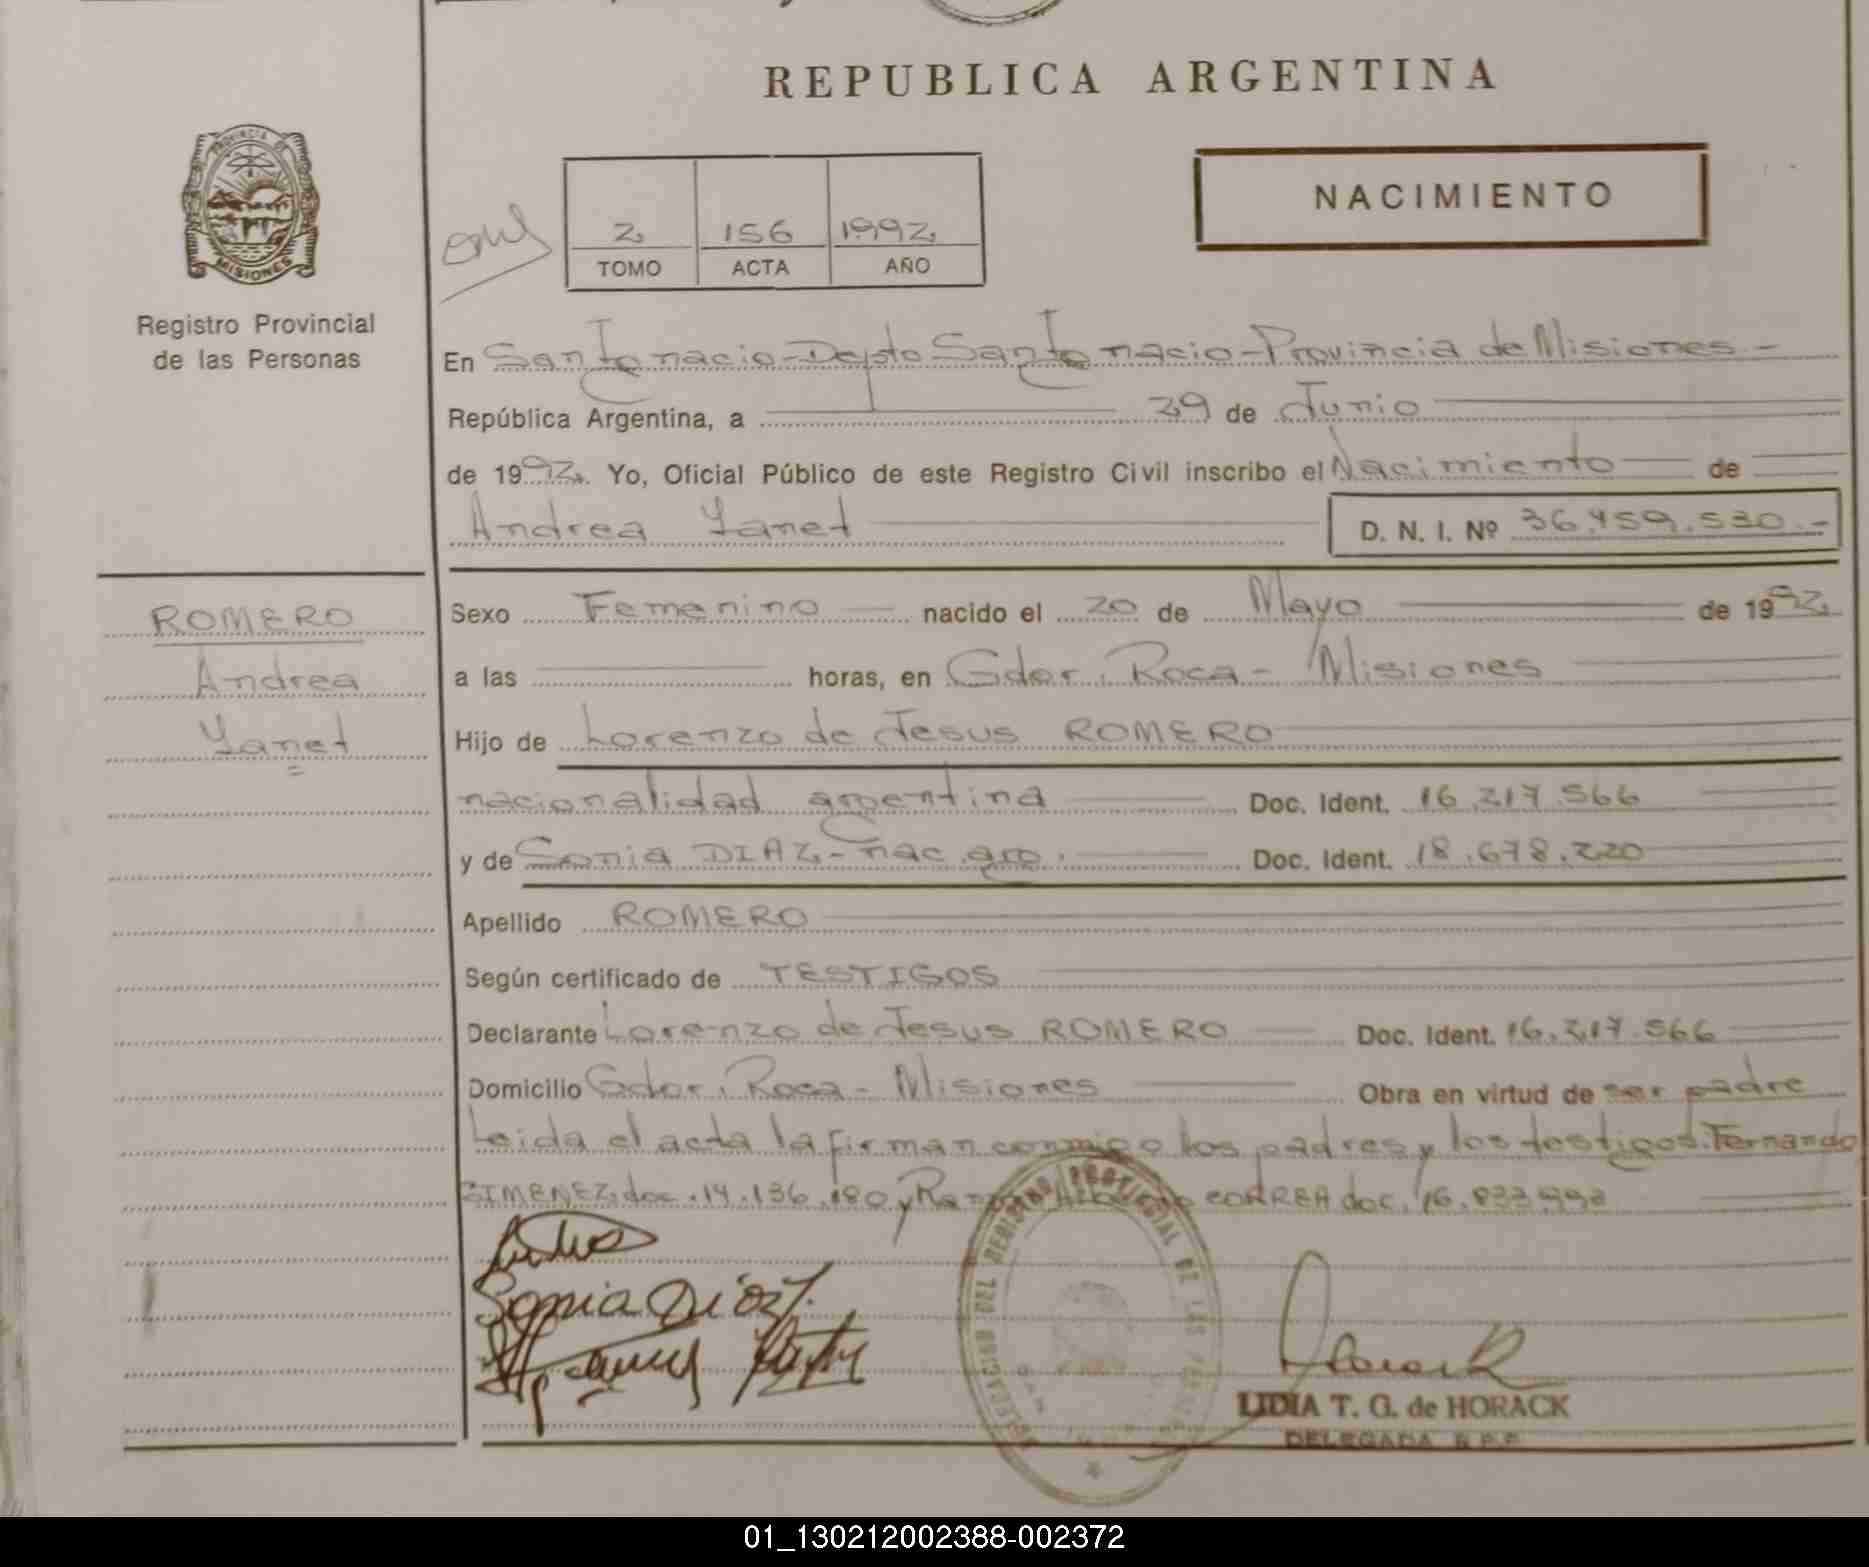 REPUBLICA ARGENTINA
NACIMIENTO
PROVINCIA DE
MISIONES
Registro Provincial
de las Personas
2 156 1992
TOMO ACTA AÑO
En San Ignacio - Depto San Ignacio - Provincia de Misiones -
República Argentina, a 29 de Junio
de 1992. Yo, Oficial Público de este Registro Civil inscribo el Nacimiento de
Andrea Yanet D. N. I. Nº 36.459.530.-
ROMERO
Andrea
Yanet
Sexo Femenino nacido el 20 de Mayo de 1992
a las horas, en Gdor. Roca - Misiones
Hijo de Lorenzo de Jesus ROMERO
nacionalidad argentina Doc. Ident. 16.217.566
y de Sonia DIAZ - nac. arg. Doc. Ident. 18.678.220
Apellido ROMERO
Según certificado de TESTIGOS
Declarante Lorenzo de Jesus ROMERO Doc. Ident. 16.217.566
Domicilio Gdor. Roca - Misiones Obra en virtud de ser padre
Leida el acta la firman conmigo los padres y los testigos: Fernando
GIMENEZ doc. 14.136.180 y CORREA doc. 16.833.992
Sonia Díaz
DELEGACION DEL REGISTRO PROVINCIAL DE LAS PERSONAS
LIDIA T. G. de HORACK
DELEGADA R.P.P.
01_130212002388-002372